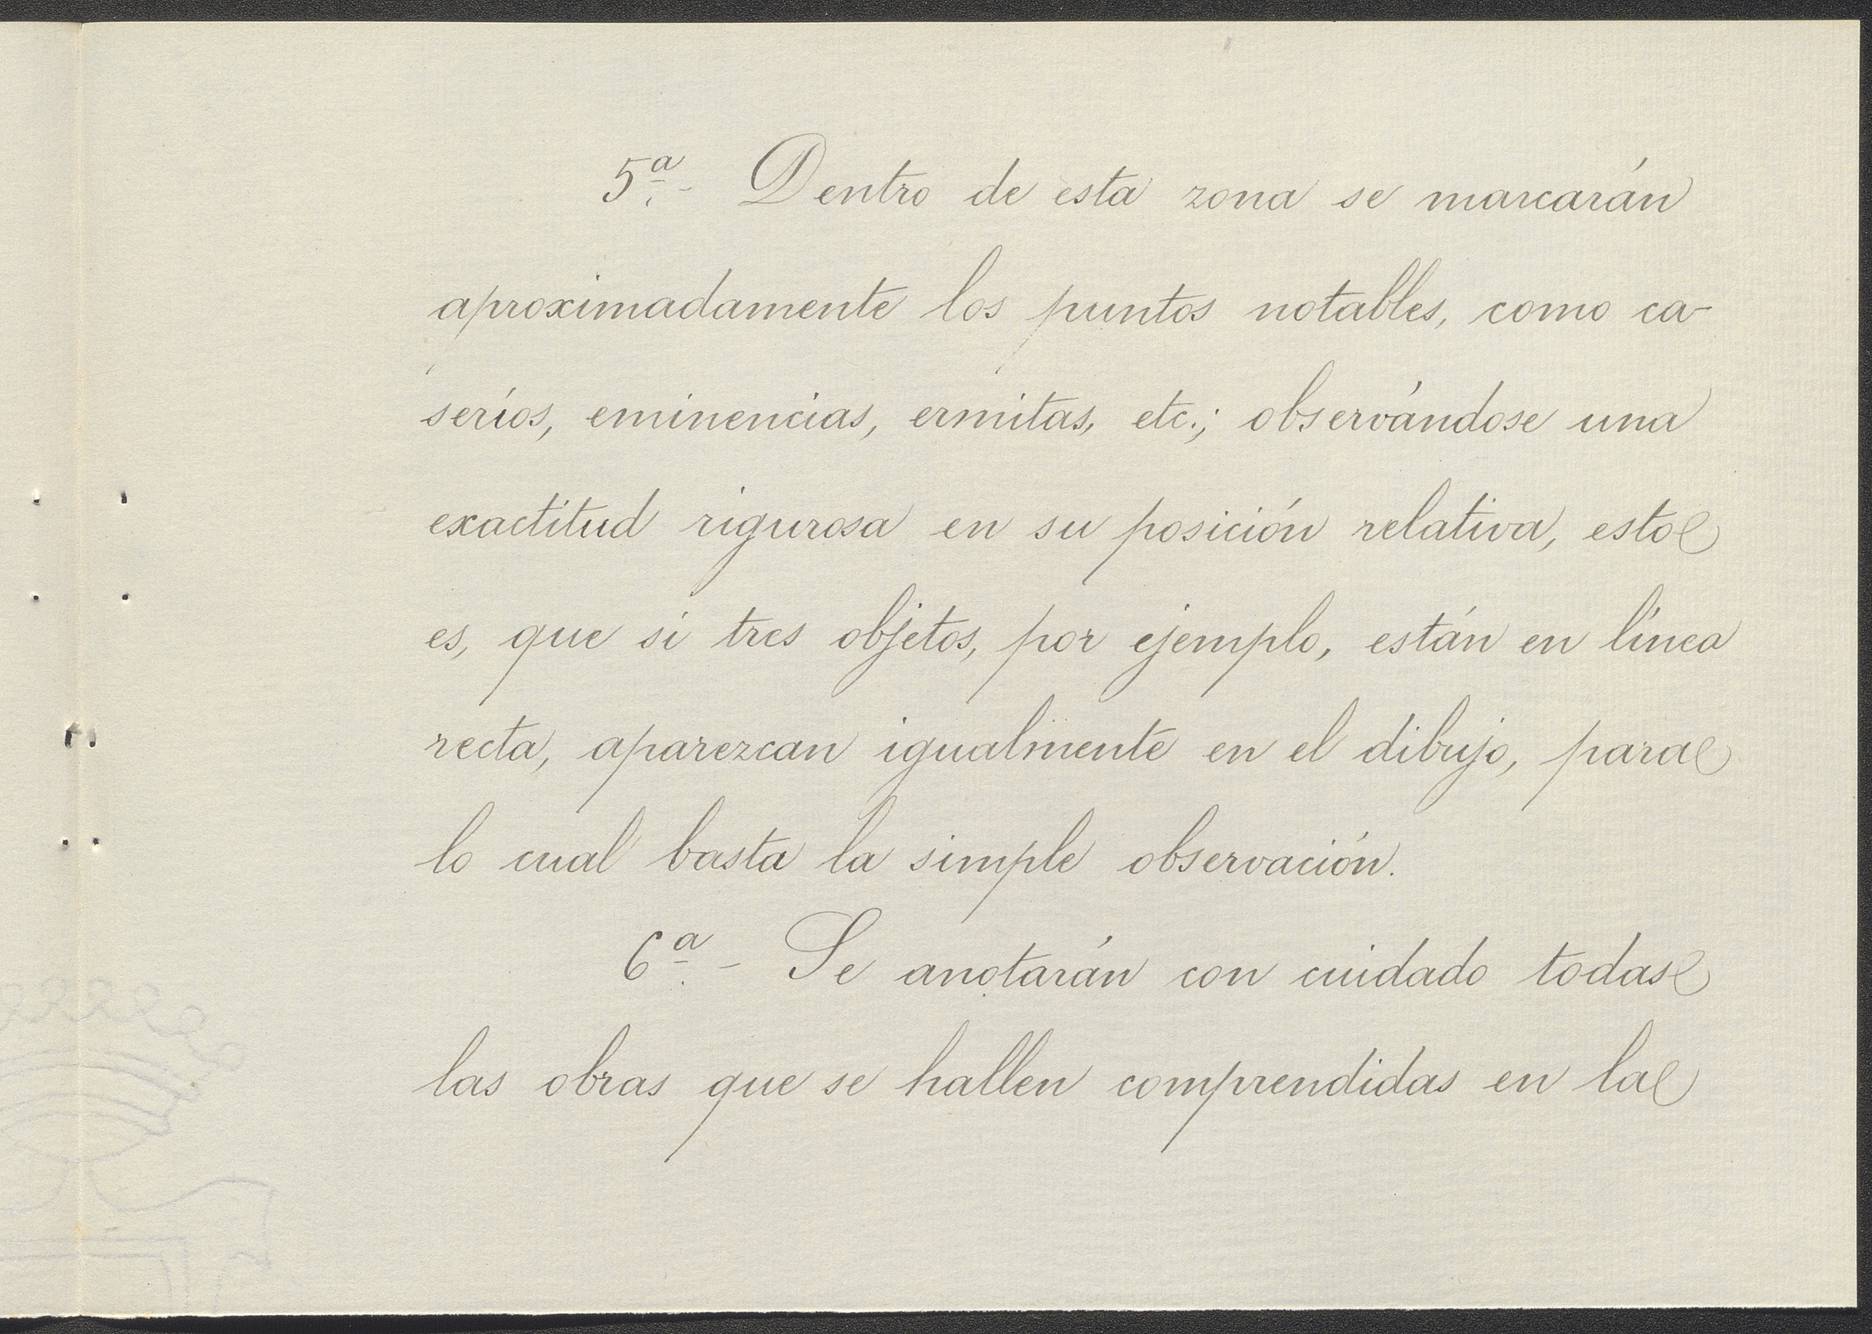 5ª.- Dentro de esta zona se marcarán
aproximadamente los puntos notables, como ca-
seríos, eminencias, ermitas, etc.; observándose una
exactitud rigurosa en su posición relativa, esto
es, que si tres objetos, por ejemplo, están en línea
recta, aparezcan igualmente en el dibujo, para
lo cual basta la simple observación.
6ª.- Se anotarán con cuidado todas
las obras que se hallen comprendidas en la